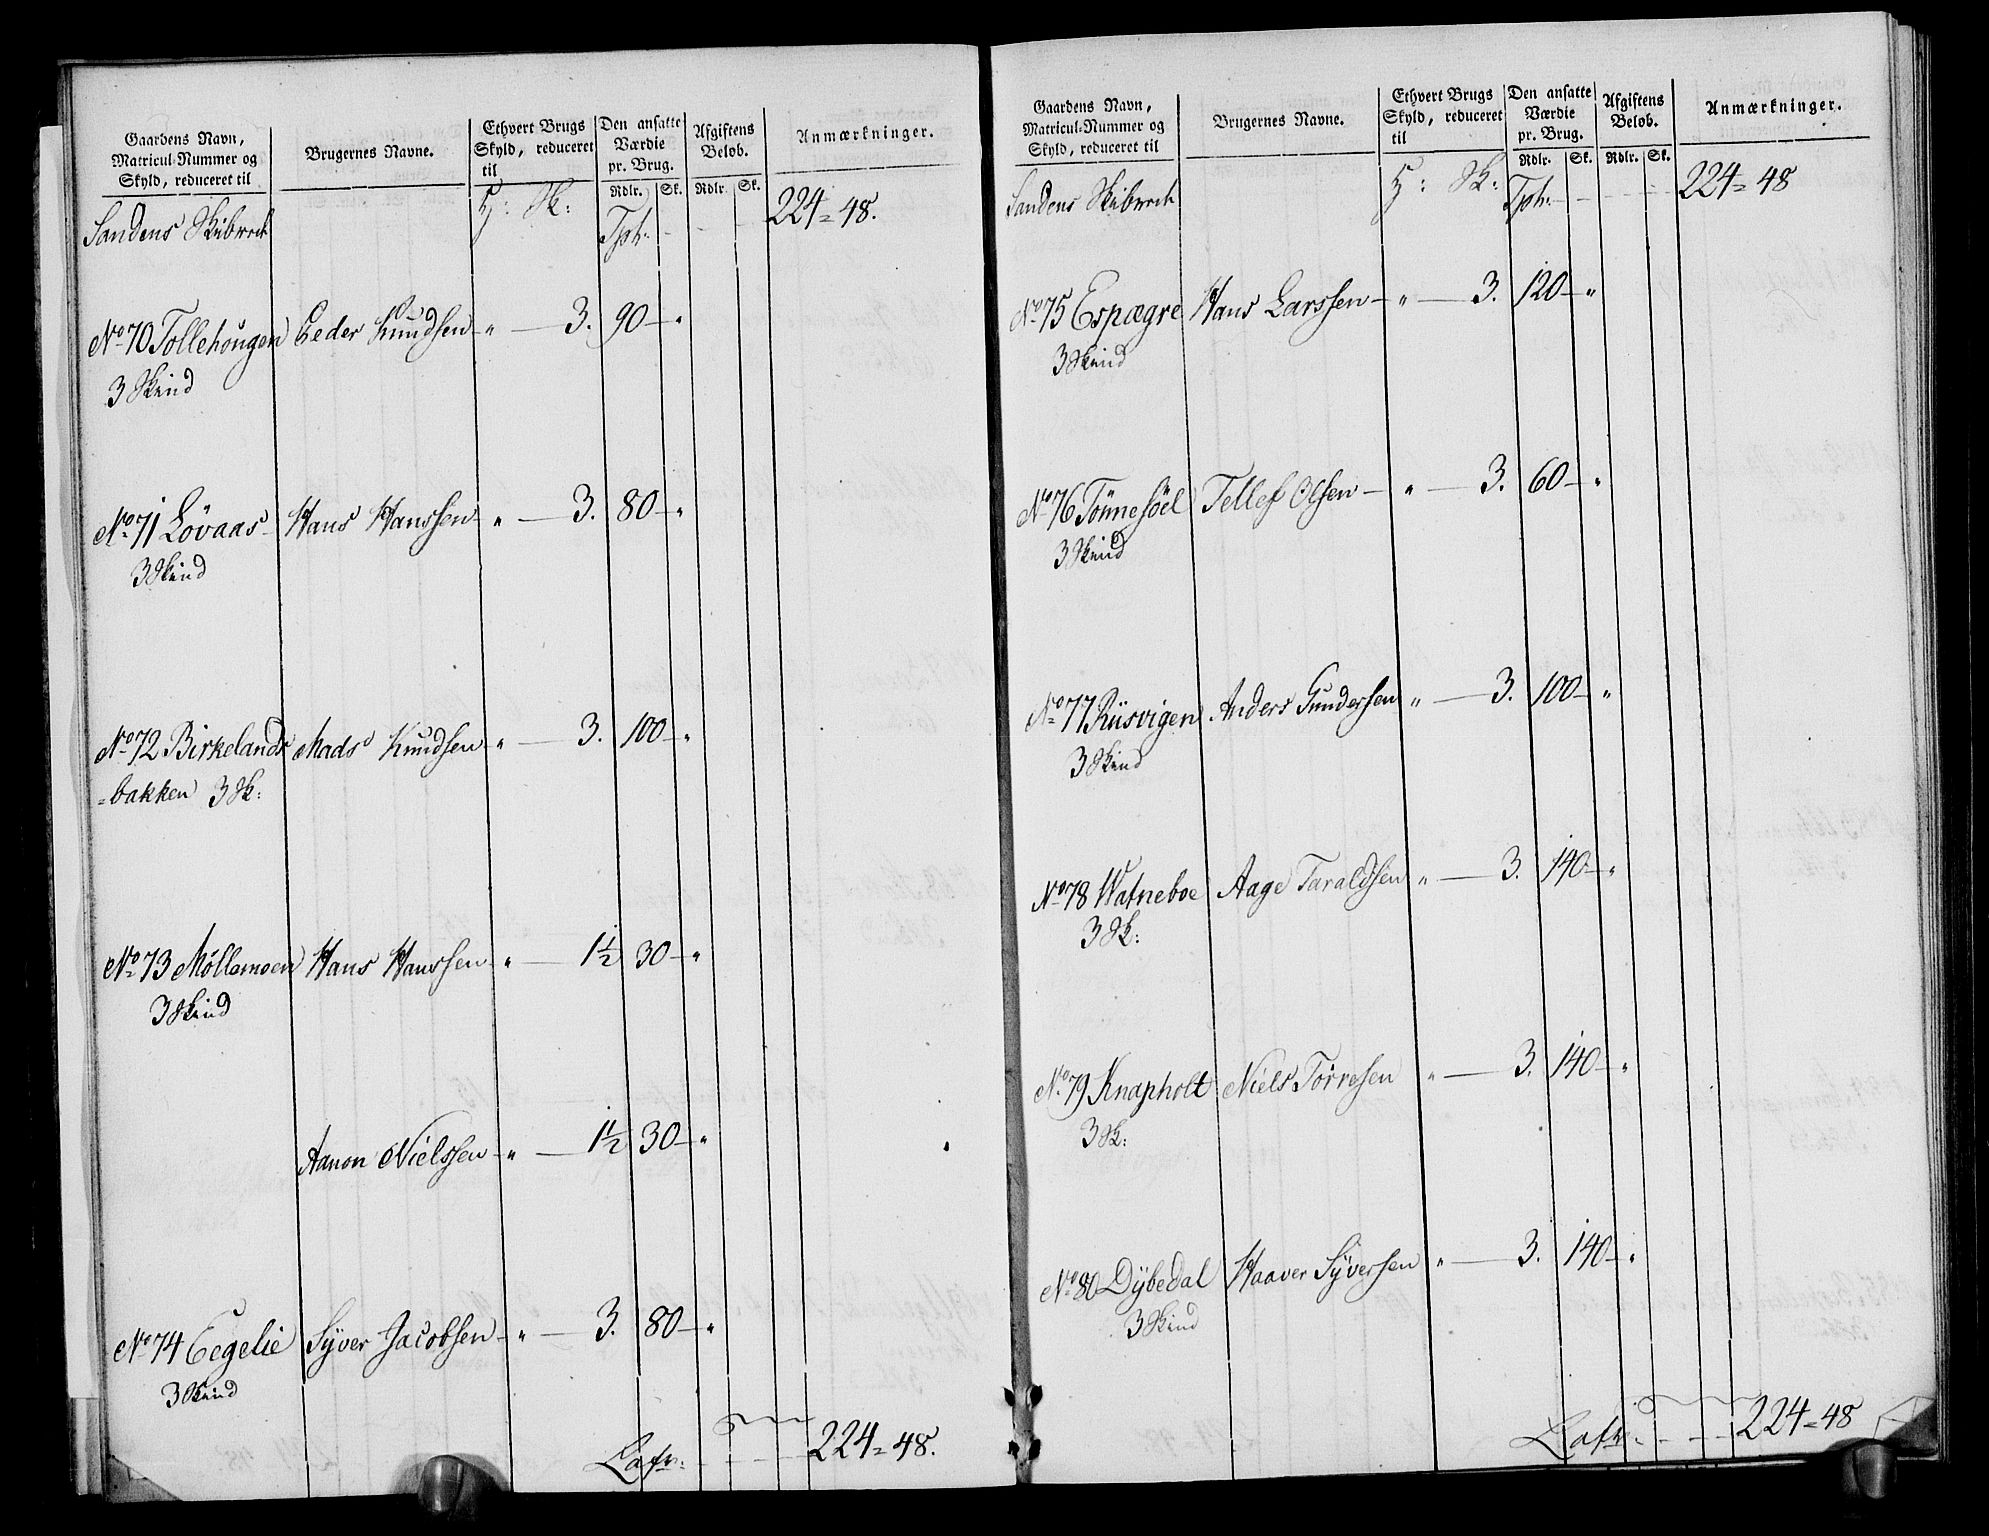 Gaardens Navn,
Matricul-Nummer og
Skyld, reduceret til
Brugernes Navne.
Ethvert Brugs
Skyld, reduceret
til
Den ansatte
Værdie
pr. Brug.
Rdlr. Sk.
Afgiftens
Beløb.
Rdlr. Sk.
Anmærkninger.
Sandens Skibrede Sk: Tpt. 224 = 48.
No 70 Tollehougen Peder Knudsen „ 3. 90 „
3 Skind
No 71 Løvaas Hans Hanssen „ 3. 80 „
3 Skind
No 72 Birkelands Mads Knudsen „ 3. 100 „
=bakken 3 Sk:
No 73 Møllemoen Hans Hanssen „ 1½ 30 „
3 Skind
Aanon Nielssen „ 1½ 30 „
No 74 Eegelie Syver Jacobsen „ 3. 80 „
3 Skind
Lats: 224 = 48.
Gaardens Navn,
Matricul-Nummer og
Skyld, reduceret til
Brugernes Navne.
Ethvert Brugs
Skyld, reduceret
til
Den ansatte
Værdie
pr. Brug.
Rdlr. Sk.
Afgiftens
Beløb.
Rdlr. Sk.
Anmærkninger.
Sandens Skibrede Sk: Tpt. 224 = 48
No 75 Espægre Hans Larssen „ 3. 120 „
3 Skind
No 76 Tønnesøel Tellef Olsen „ 3. 60 „
3 Skind
No 77 Riisvigen Anders Gundersen „ 3. 100 „
3 Skind
No 78 Watneboe Aage Taraldsen „ 3. 140 „
3 Sk:
No 79 Knapholt Niels Torresen „ 3. 140 „
3 Sk:
No 80 Dybedal Haaver Syversen „ 3. 140 „
3 Skind
Lats: 224 = 48